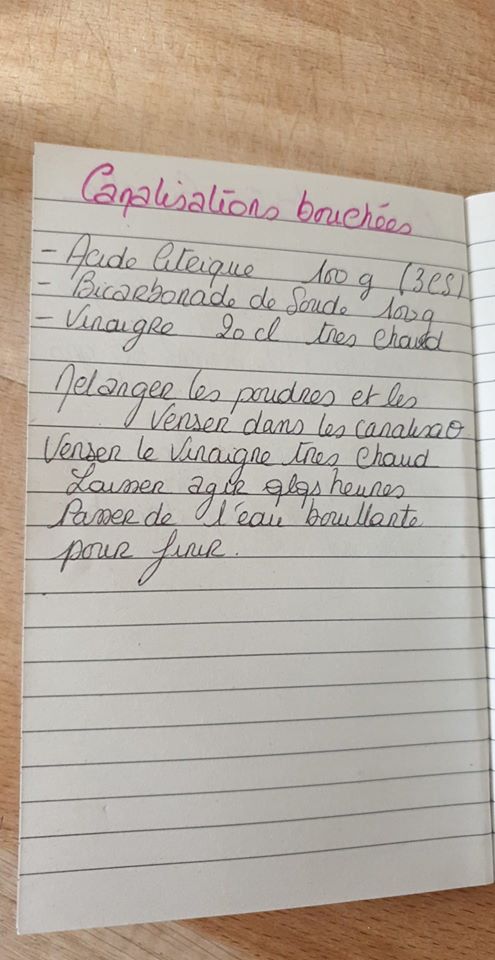 Canalisations bouchées
- Acide Citrique 100 g (3CS)
- Bicarbonade de Soude 100g
- Vinaigre 20 cl tres chaud
Melanger les poudres et les
verser dans les canalisa⁰
Verser le Vinaigre tres chaud
Laisser agir qlqs heures
Passer de l'eau bouillante
pour finir.